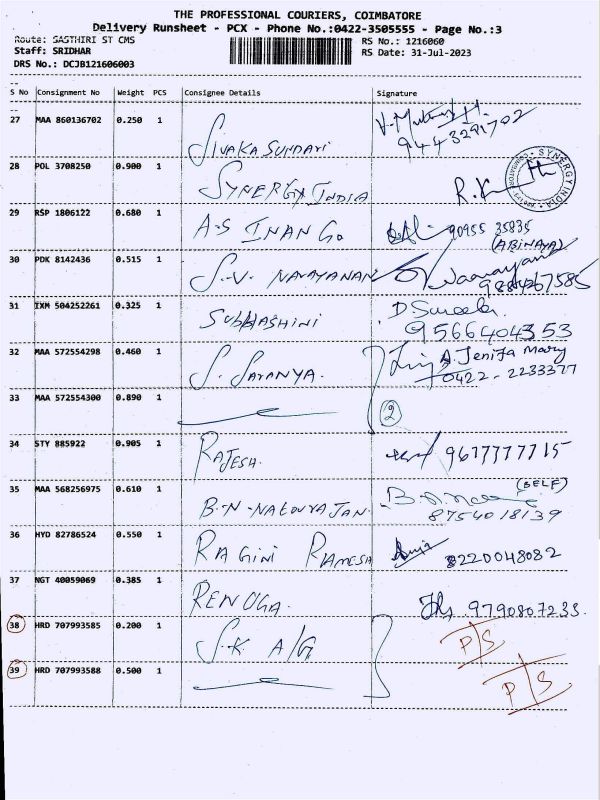 THE PROFESSIONAL COURIERS, COIMBATORE
Delivery Runsheet - PCX - Phone No.:0422-3505555 - Page No.:3
Route: SASTHIRI ST CMS
RS No.: 1216060
Staff: SRIDHAR
RS Date: 31-Jul-2023
DRS No.: DCJB121606003
S No Consignment No Weight PCS Consignee Details Signature
27 MAA 860136702 0.250 1 SIVAKA SUNDARI 9443291702
28 POL 3708250 0.900 1 SYNERGY INDIA
SYNERGY INDIA
29 RSP 1806122 0.680 1 A-S INAN Go 90955 35835
(ABINAYA)
30 PDK 8142436 0.515 1 S.V. NARAYANAN Naarayanan
9884267585
31 IXM 504252261 0.325 1 SUBHASHINI
9566404353
32 MAA 572554298 0.460 1 S. SARANYA. A. Jenifa Mary
0422-2233377
33 MAA 572554300 0.890 1 2
34 STY 885922 0.905 1 RAJESH. 9677777715
35 MAA 568256975 0.610 1 B-N-NATOURAJAN. (SELF)
8754018139
36 HYD 82786524 0.550 1 RAGINI RAMESH 8220048082
37 NGT 40059069 0.385 1 RENUGA. 9790807233
38 HRD 707993585 0.200 1 S.K A/G P/S
39 HRD 707993588 0.500 1 P/S